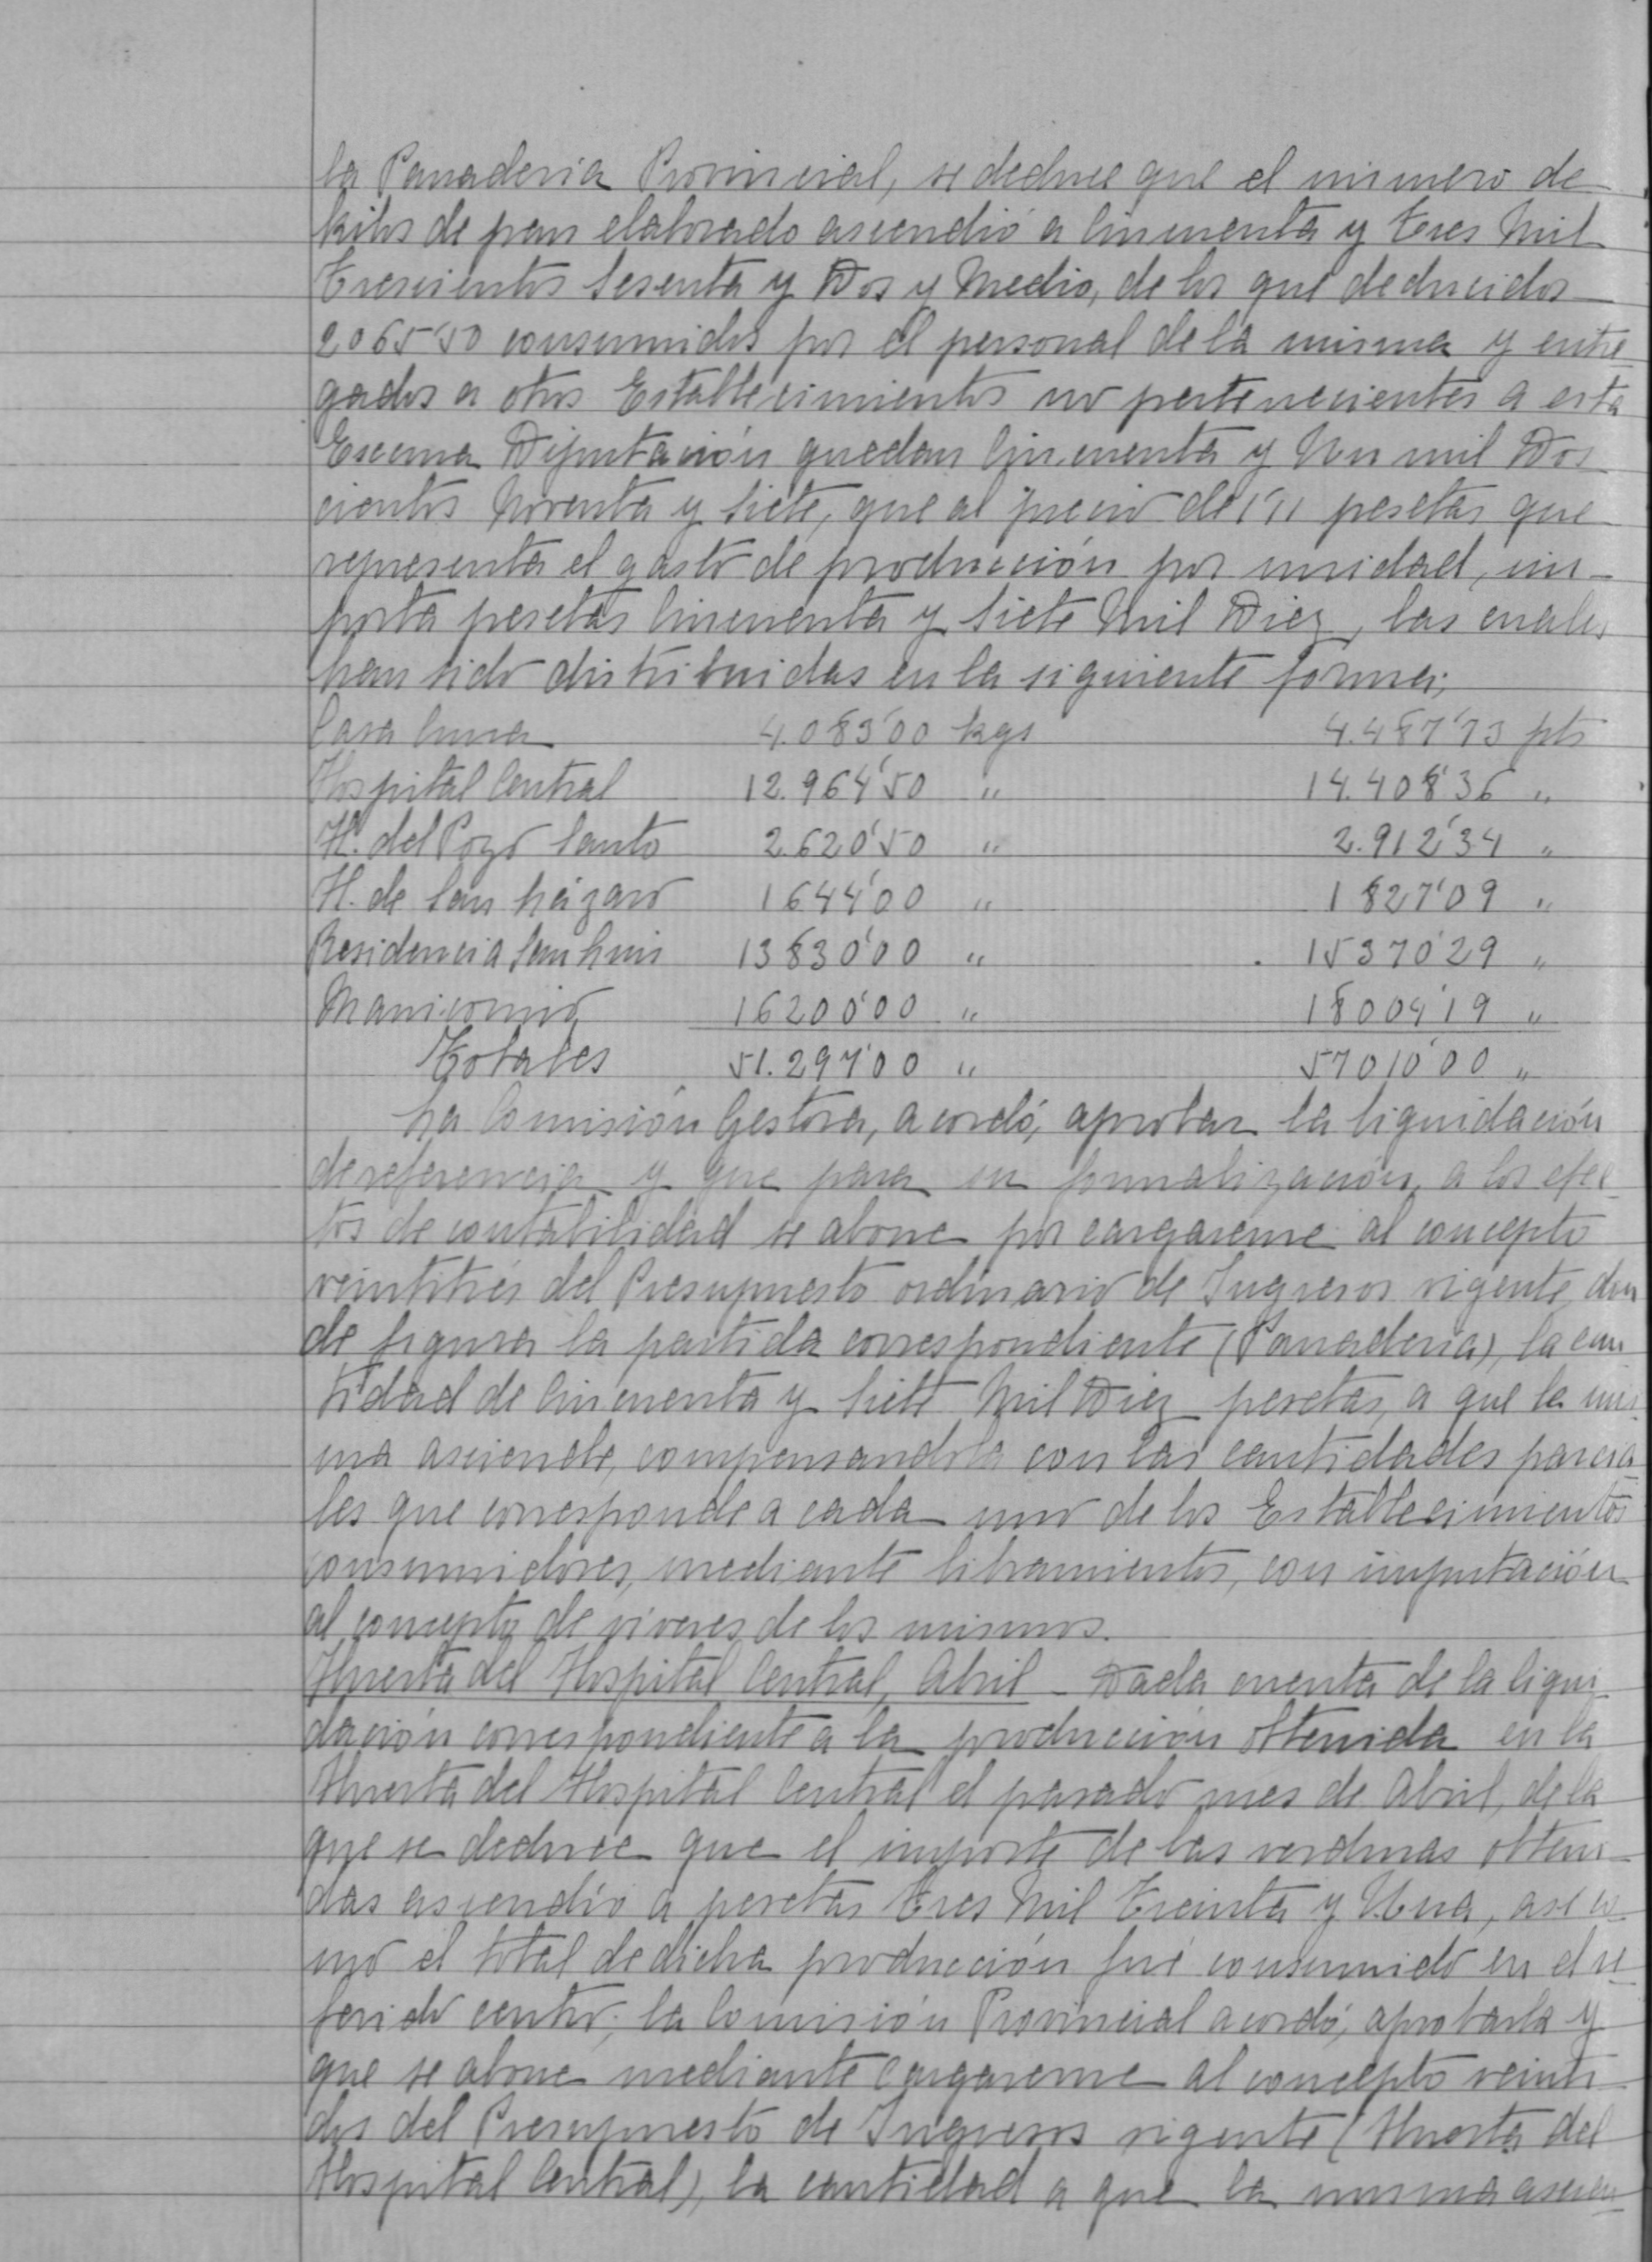 la Panaderia Provincial, se deduce que el número de
kilos de pan elaborado ascendió a Cincuenta y tres Mil
Trescientos Sesenta y Dos y Medio, de los que deducidos
2065'50 consumidos por el personal de la misma y entre
gados a otros Establecimientos no pertenecientes a esta
Excma Diputación quedan Cincuenta y Un mil Dos
cientos Noventa y Siete, que al precio de 1'11 pesetas que
representa el gasto de producción por unidad, im-
porta pesetas Cincuenta y Siete Mil Diez, las cuales
han sido distribuidas en la siguiente forma;
Casa Cuna 4.083'00 kgs 4.487'73 pts
Hospital Central 12.964'50 " 14.408'36 "
H. del Pozo Santo 2.620'50 " 2.912'34 "
H. de San Lázaro 1644'00 " 1827'09 "
Residencia San Luis 13830'00 " 15370'29 "
Manicomio 16200'00 " 18004'19 "
Totales 51.297'00 " 57010'00 "
La Comisión Gestora, acordó, aprobar la liquidación
de referencia y que para su formalización a los efec-
tos de contabilidad se abone por cargareme al concepto
veintitrés del Presupuesto ordinario de Ingresos vigente, don
de figura la partida correspondiente (Panaderia), la can
tidad de Cincuenta y Siete Mil Diez pesetas, a que la mis
ma asciende, compensandola con las cantidades parcia
les que corresponde a cada uno de los Establecimientos
consumidores, mediante libramientos, con imputación
al concepto de viveres de los mismos.
Huerta del Hospital Central, Abril - Dada cuenta de la liqui
dación correspondiente a la producción obtenida en la
Huerta del Hospital Central el pasado mes de Abril, de la
que se deduce que el importe de las verduras obteni
das ascendió a pesetas Tres Mil Treinta y Una, asi co
mo el total de dicha producción fué consumido en el re
ferido centro; la Comisión Provincial acordó, aprobarla y
que se abone mediante cargareme al concepto veinti
dos del Presupuesto de Ingresos vigente (Huerta del
Hospital Central), la cantidad a que la misma ascien